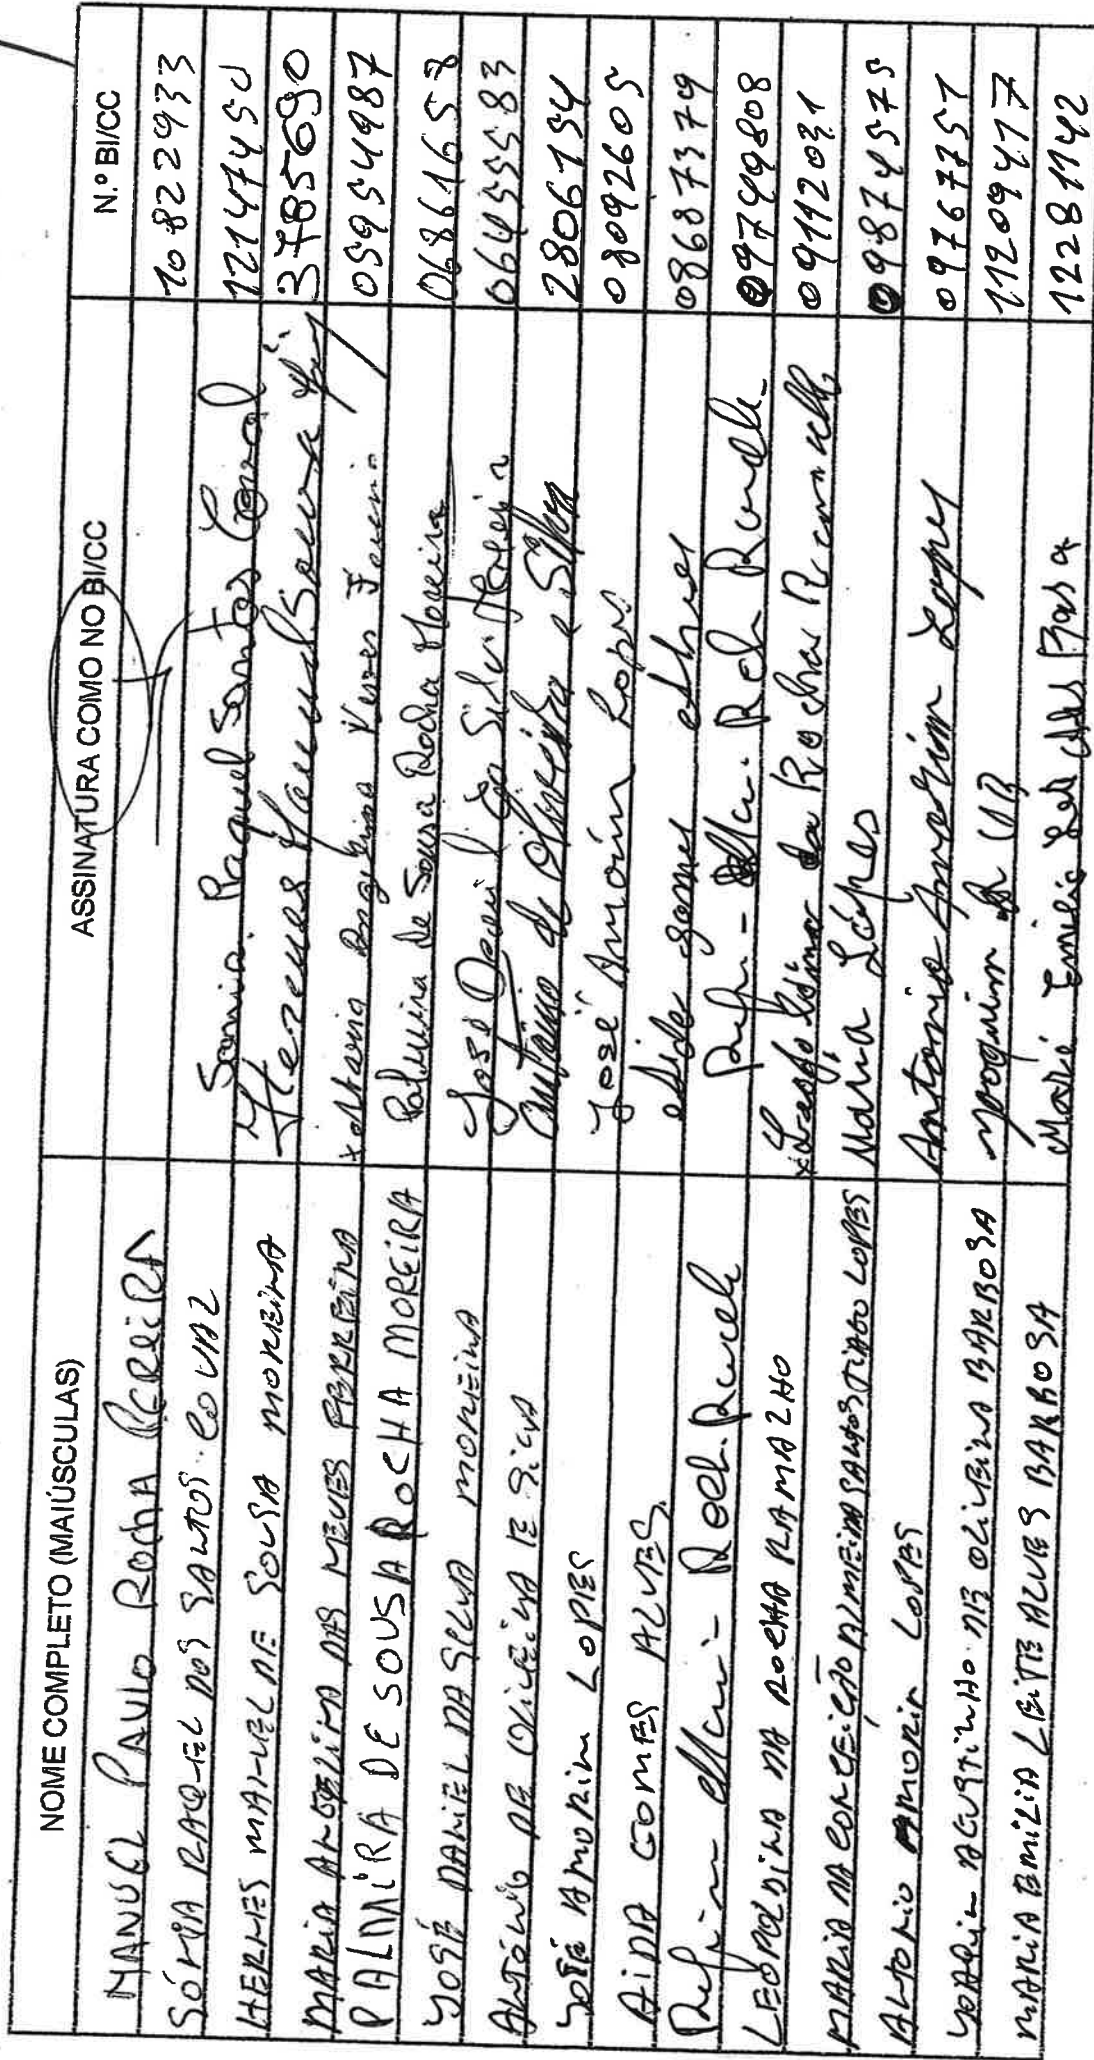 NOME COMPLETO (MAIÚSCULAS) ASSINATURA COMO NO BI/CC N.º BI/CC
MANUEL PAULO ROCHA PEREIRA 10822933
SÓNIA RAQUEL DOS SANTOS COVAL Sonia Raquel Santos Coval 12147450
HERMES MANUEL DE SOUSA MOREIRA Hermes Manuel Sousa 3785690
MARIA ANGELINA DAS NEVES FERREIRA Maria Angelina Neves Ferreira 05954987
PALMIRA DE SOUSA ROCHA MOREIRA Palmira de Sousa Rocha Moreira 06861658
JOSÉ DANIEL DA SILVA MOREIRA José Daniel da Silva Moreira 06455583
ANTÓNIO DE OLIVEIRA E SILVA António de Oliveira e Silva 2806154
JOSÉ AMORIM LOPES José Amorim Lopes 08092605
AIDA GOMES ALVES Aida Gomes Alves 08687379
09749808
LEOPOLDINA DA ROCHA RAMALHO Leopoldina da Rocha Ramalho 09112031
MARIA DA CONCEIÇÃO ALMEIDA SANTOS TIAGO LOPES Maria Lopes 09874575
ANTONIO AMORIM LOPES Antonio Amorim Lopes 09767757
JOAQUIM AGUSTINHO DE OLIVEIRA BARBOSA Joaquim 11209477
MARIA EMILIA LEITE ALVES BARBOSA Maria Emilia 12281142